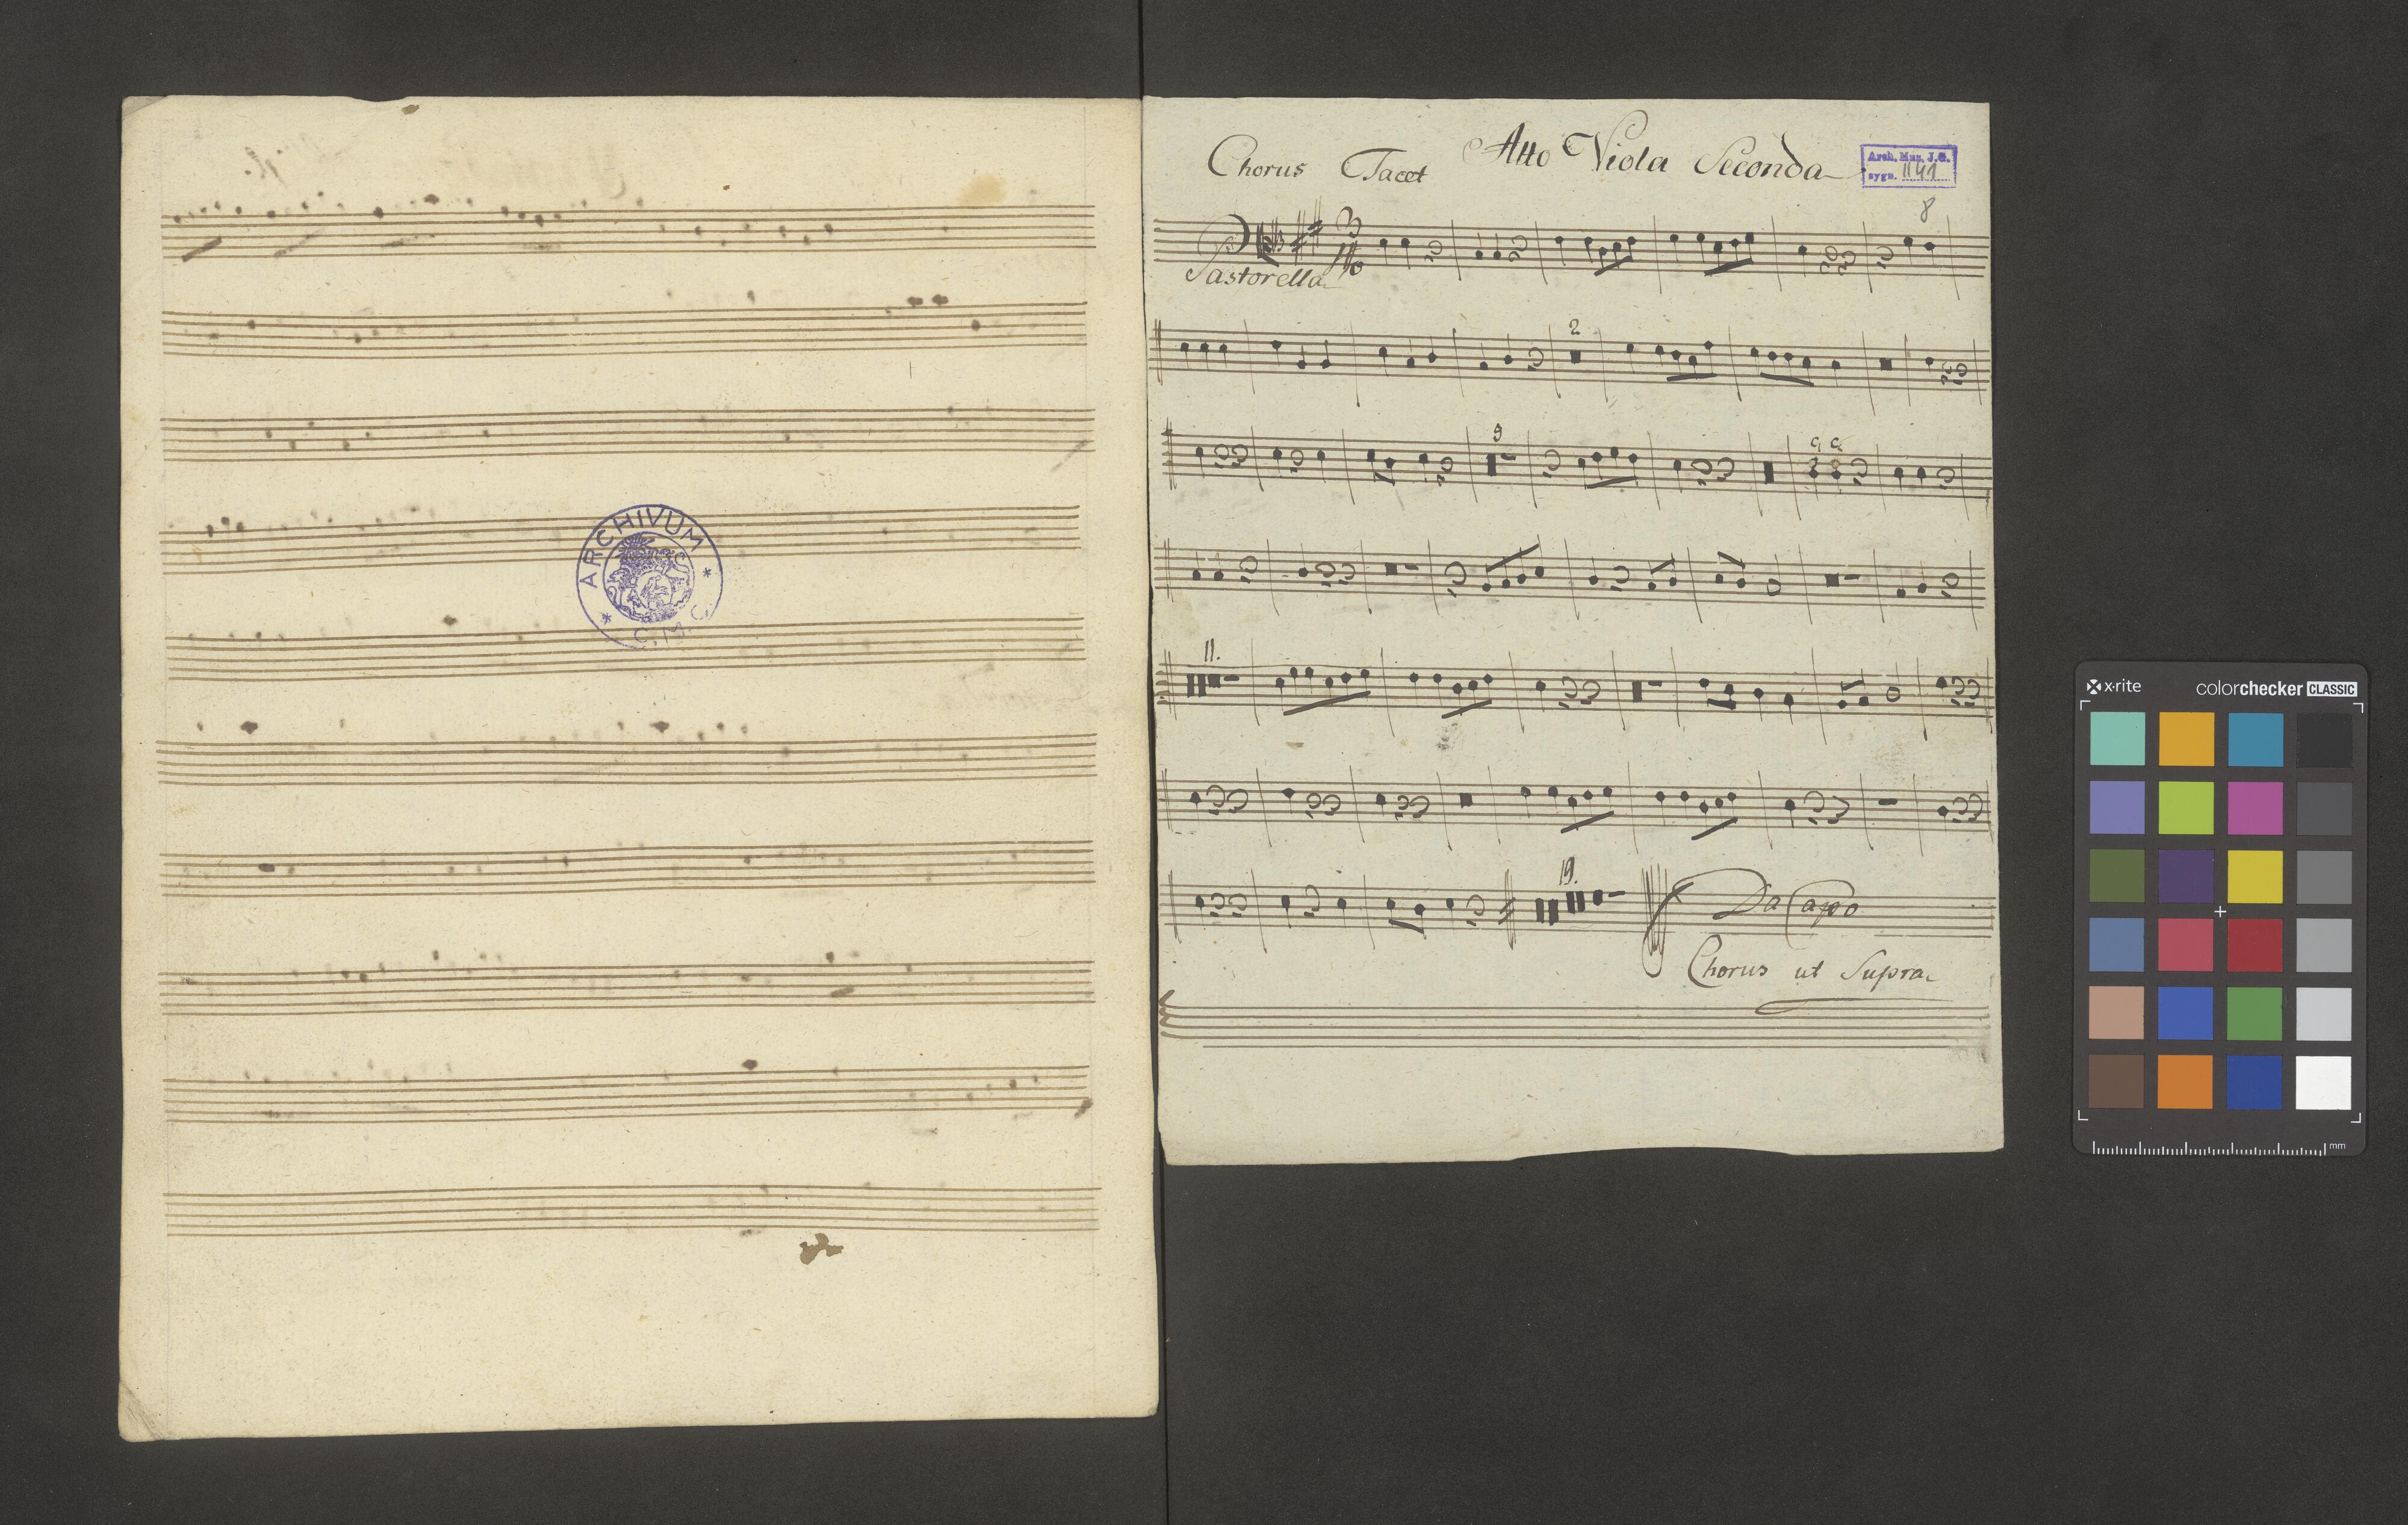 ARCHIVUM
* C. M. C. *
Chorus Tacet Alto Viola Seconda
Arch. Mus. J. G.
sygn. 1141
8
Pastorella
2
9
11.
19.
Da Capo
Chorus ut Supra
x·rite colorchecker CLASSIC
mm